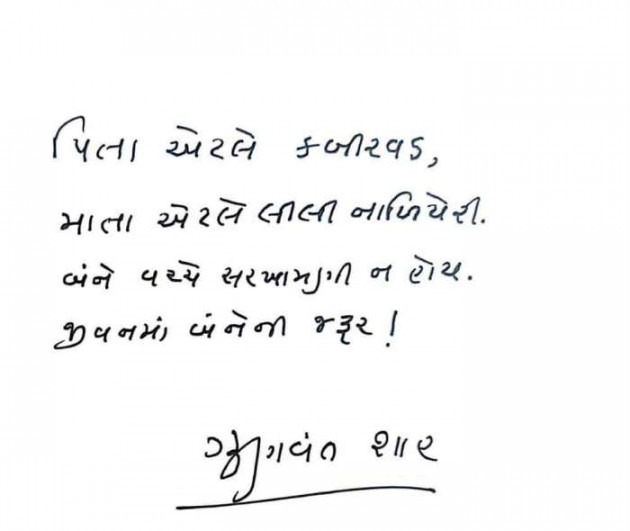 પિતા એટલે કબીરવડ,
માતા એટલે લીલી નાળિયેરી.
બંને વચ્ચે સરખામણી ન હોય.
જીવનમાં બંનેની જરૂર!
ગુણવંત શાહ